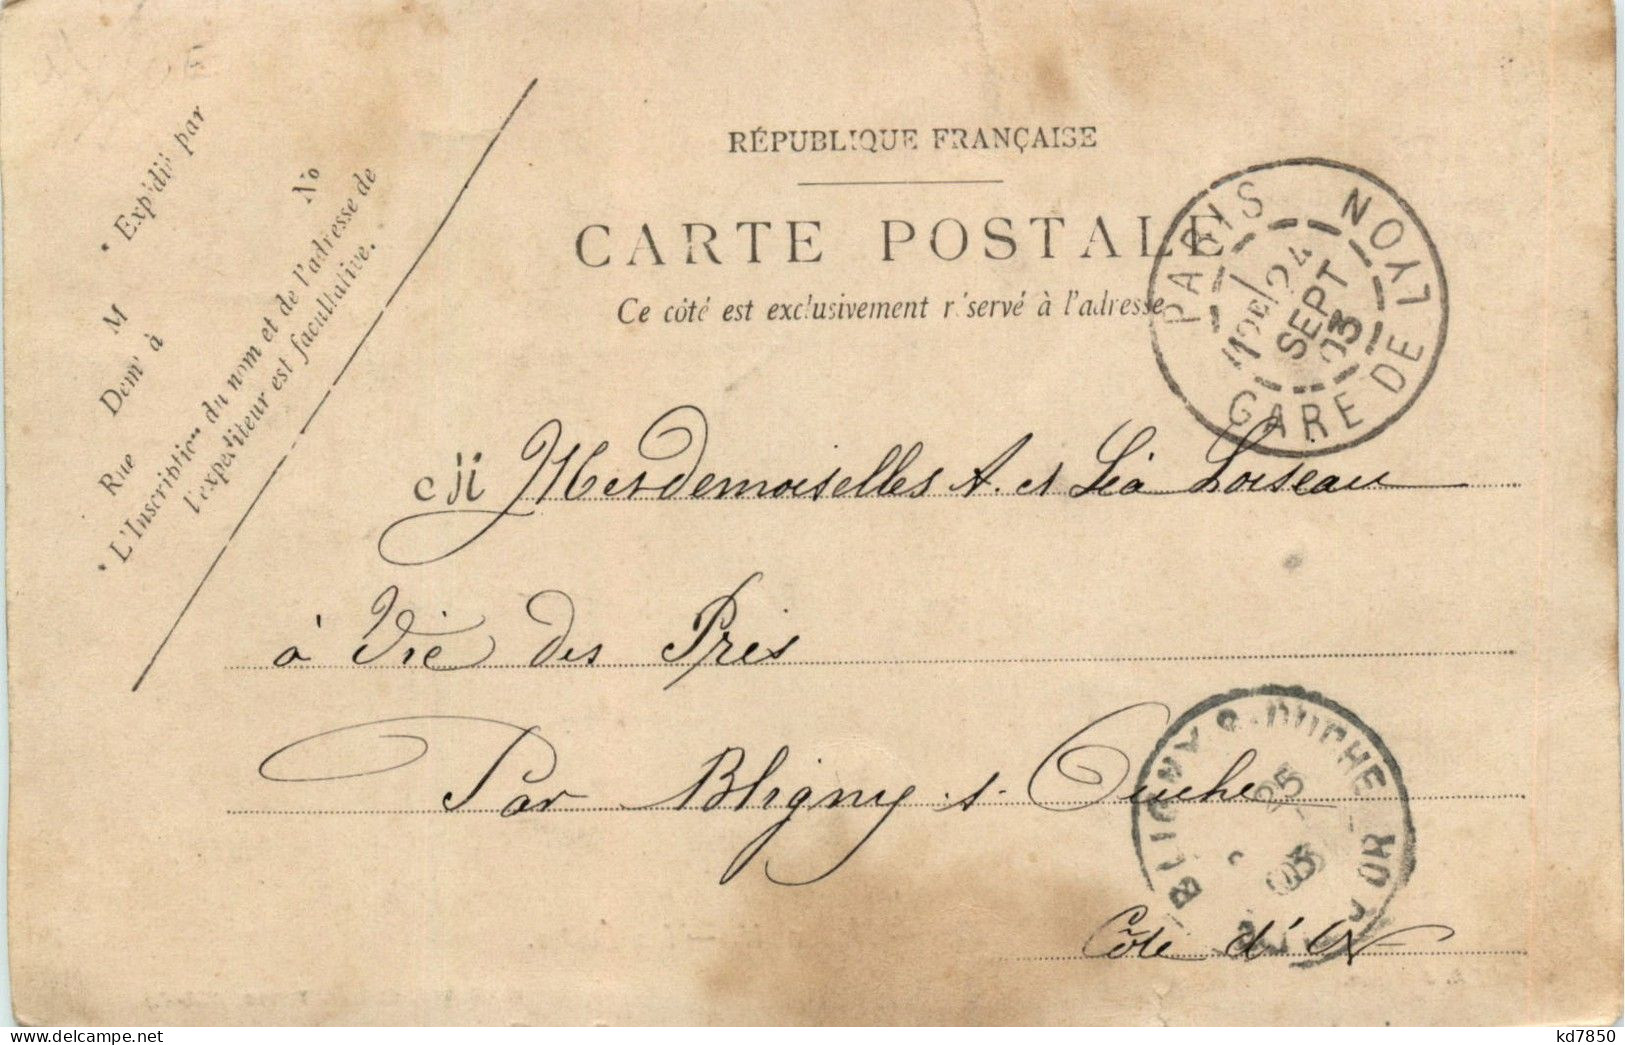 * Expédié par
M
Dem^t à
Rue N^o
* L'Inscription du nom et de l'adresse de
l'expéditeur est facultative.
RÉPUBLIQUE FRANÇAISE
CARTE POSTALE
Ce côté est exclusivement réservé à l'adresse
PARIS GARE DE LYON
24
SEPT
03
Mesdemoiselles A. et Léa Loiseau
à Vic des Prés
Par Bligny s. Ouche
Côte d'Or
BLIGNY S. OUCHE
25
03
kd7850